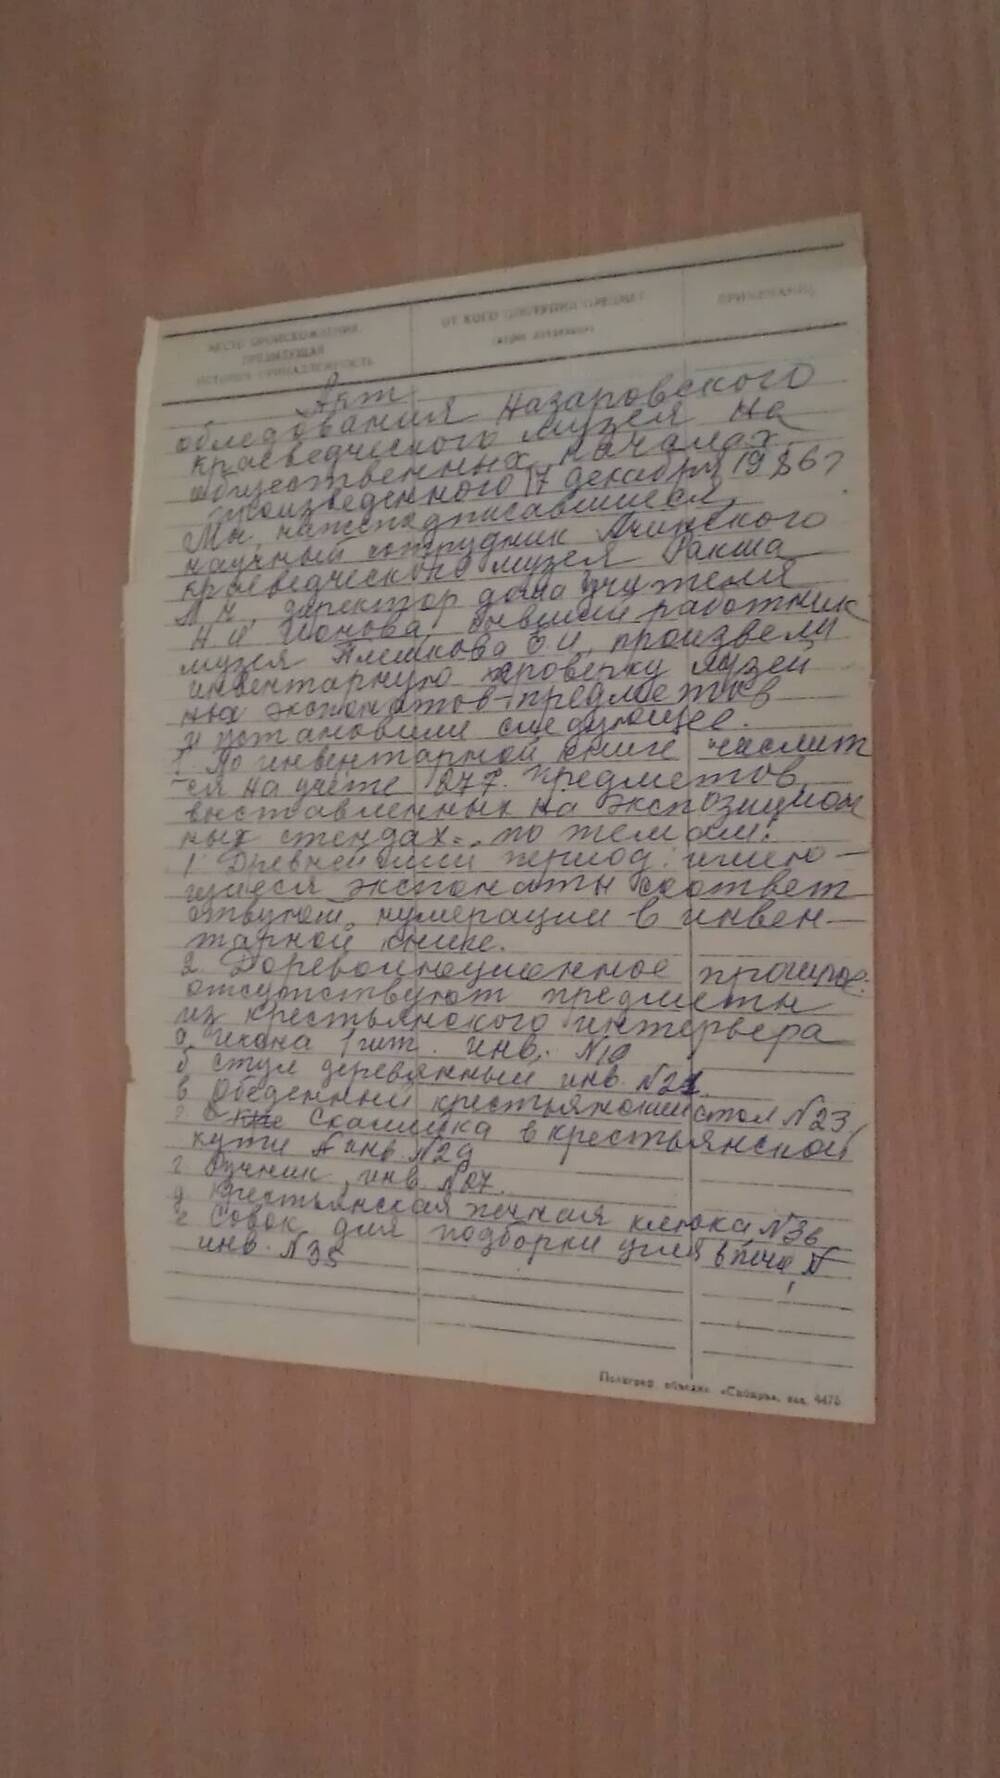 МЕСТО ПРОИСХОЖДЕНИЯ,
ПРЕДЫДУЩАЯ
ИСТОРИЯ, ПРИНАДЛЕЖНОСТЬ
ОТ КОГО ПОСТУПИЛ ПРЕДМЕТ
ПРИМЕЧАНИЕ
Акт
обледования Назаровского
краеведческого музея на
общественных началах
произведенного 17 декабря 1986 г
Мы, нижеподписавшиеся,
научный сотрудник Ачинского
краеведческого музея Ракша
директор дома учителя
Н.И. Ионова, бывший работник
музея Плешкова Е.И, произвели
инвентарную проверку музей
ных экспонатов-предметов
и установили следующее.
1 По инвентарной книге числит
ся на учёте 277 предметов,
выставленных на экспозицион
ных стендах - по темам:
1. Древнейший период: имею-
щиеся экспонаты соответ
ствуют, нумерации в инвен-
тарной книке.
2. Дореволюционное прошлое:
отсутствуют предметы
из крестьянского интерьера
а, икона 1 шт. инв. №19
б стул деревянный инв. №21.
в Обеденный крестьянский стол №23,
г Скамейка в крестьянской
кути инв. №29
г Ручник, инв. №27.
д Крестьянская печная клюка №36
е Совок для подборки угля в пече, №
инв. №35
Полиграф. объедин. «Сибирь», зак. 4476